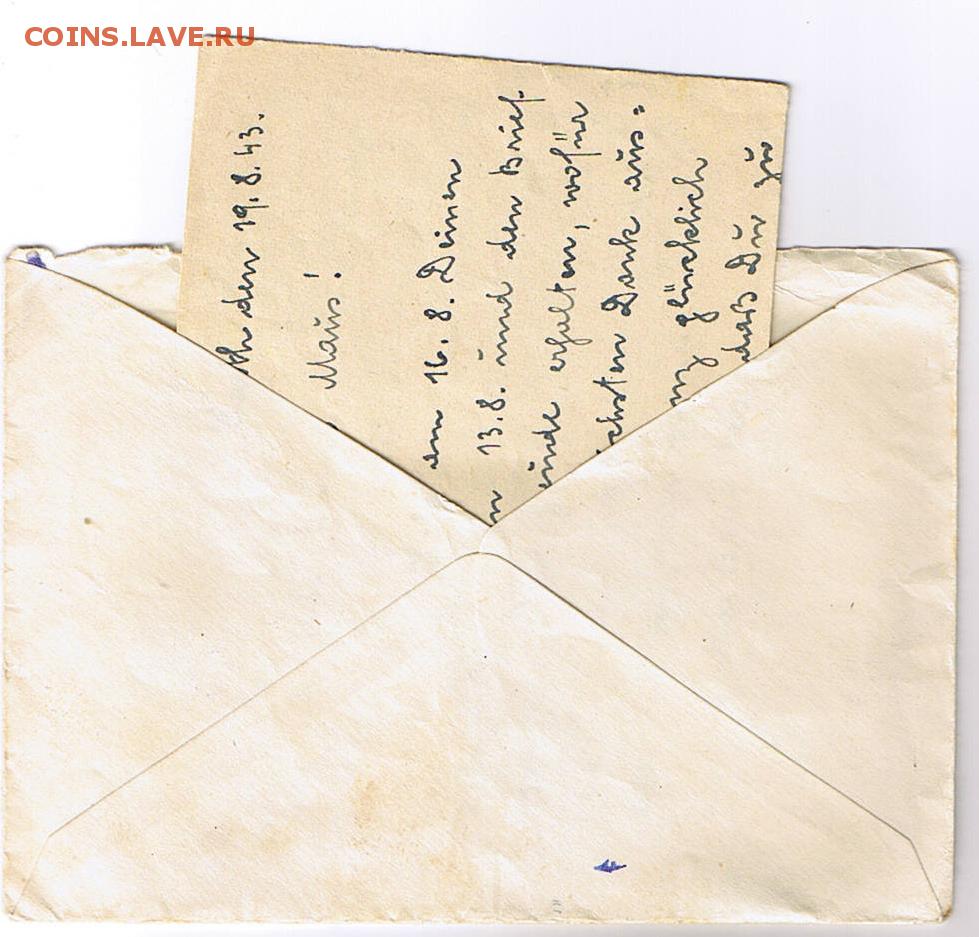 COINS.LAVE.RU
den 19.8.43.
Maus!
16.8. Deinen
13.8. und den Brief.
erhalten, wofür
Dank aus=
glücklich
daß Du zu